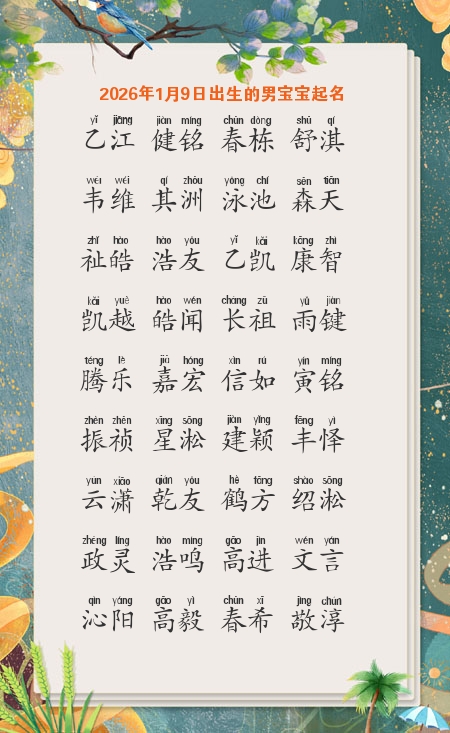 2026年1月9日出生的男宝宝起名
yǐ jiāng jiàn míng chūn dòng shū qí
乙江 健铭 春栋 舒淇
wéi wéi qí zhōu yǒng chí sēn tiān
韦维 其洲 泳池 森天
zhǐ hào hào yǒu yǐ kǎi kāng zhì
祉皓 浩友 乙凯 康智
kǎi yuè hào wén cháng zǔ yǔ jiàn
凯越 皓闻 长祖 雨键
téng lè jiā hóng xìn rú yín míng
腾乐 嘉宏 信如 寅铭
zhèn zhēn xīng sōng jiàn yǐng fēng yì
振祯 星淞 建颖 丰怿
yún xiāo qián yǒu hè fāng shào sōng
云潇 乾友 鹤方 绍淞
zhèng líng hào míng gāo jìn wén yán
政灵 浩鸣 高进 文言
qìn yáng gāo yì chūn xī jìng chún
沁阳 高毅 春希 敬淳